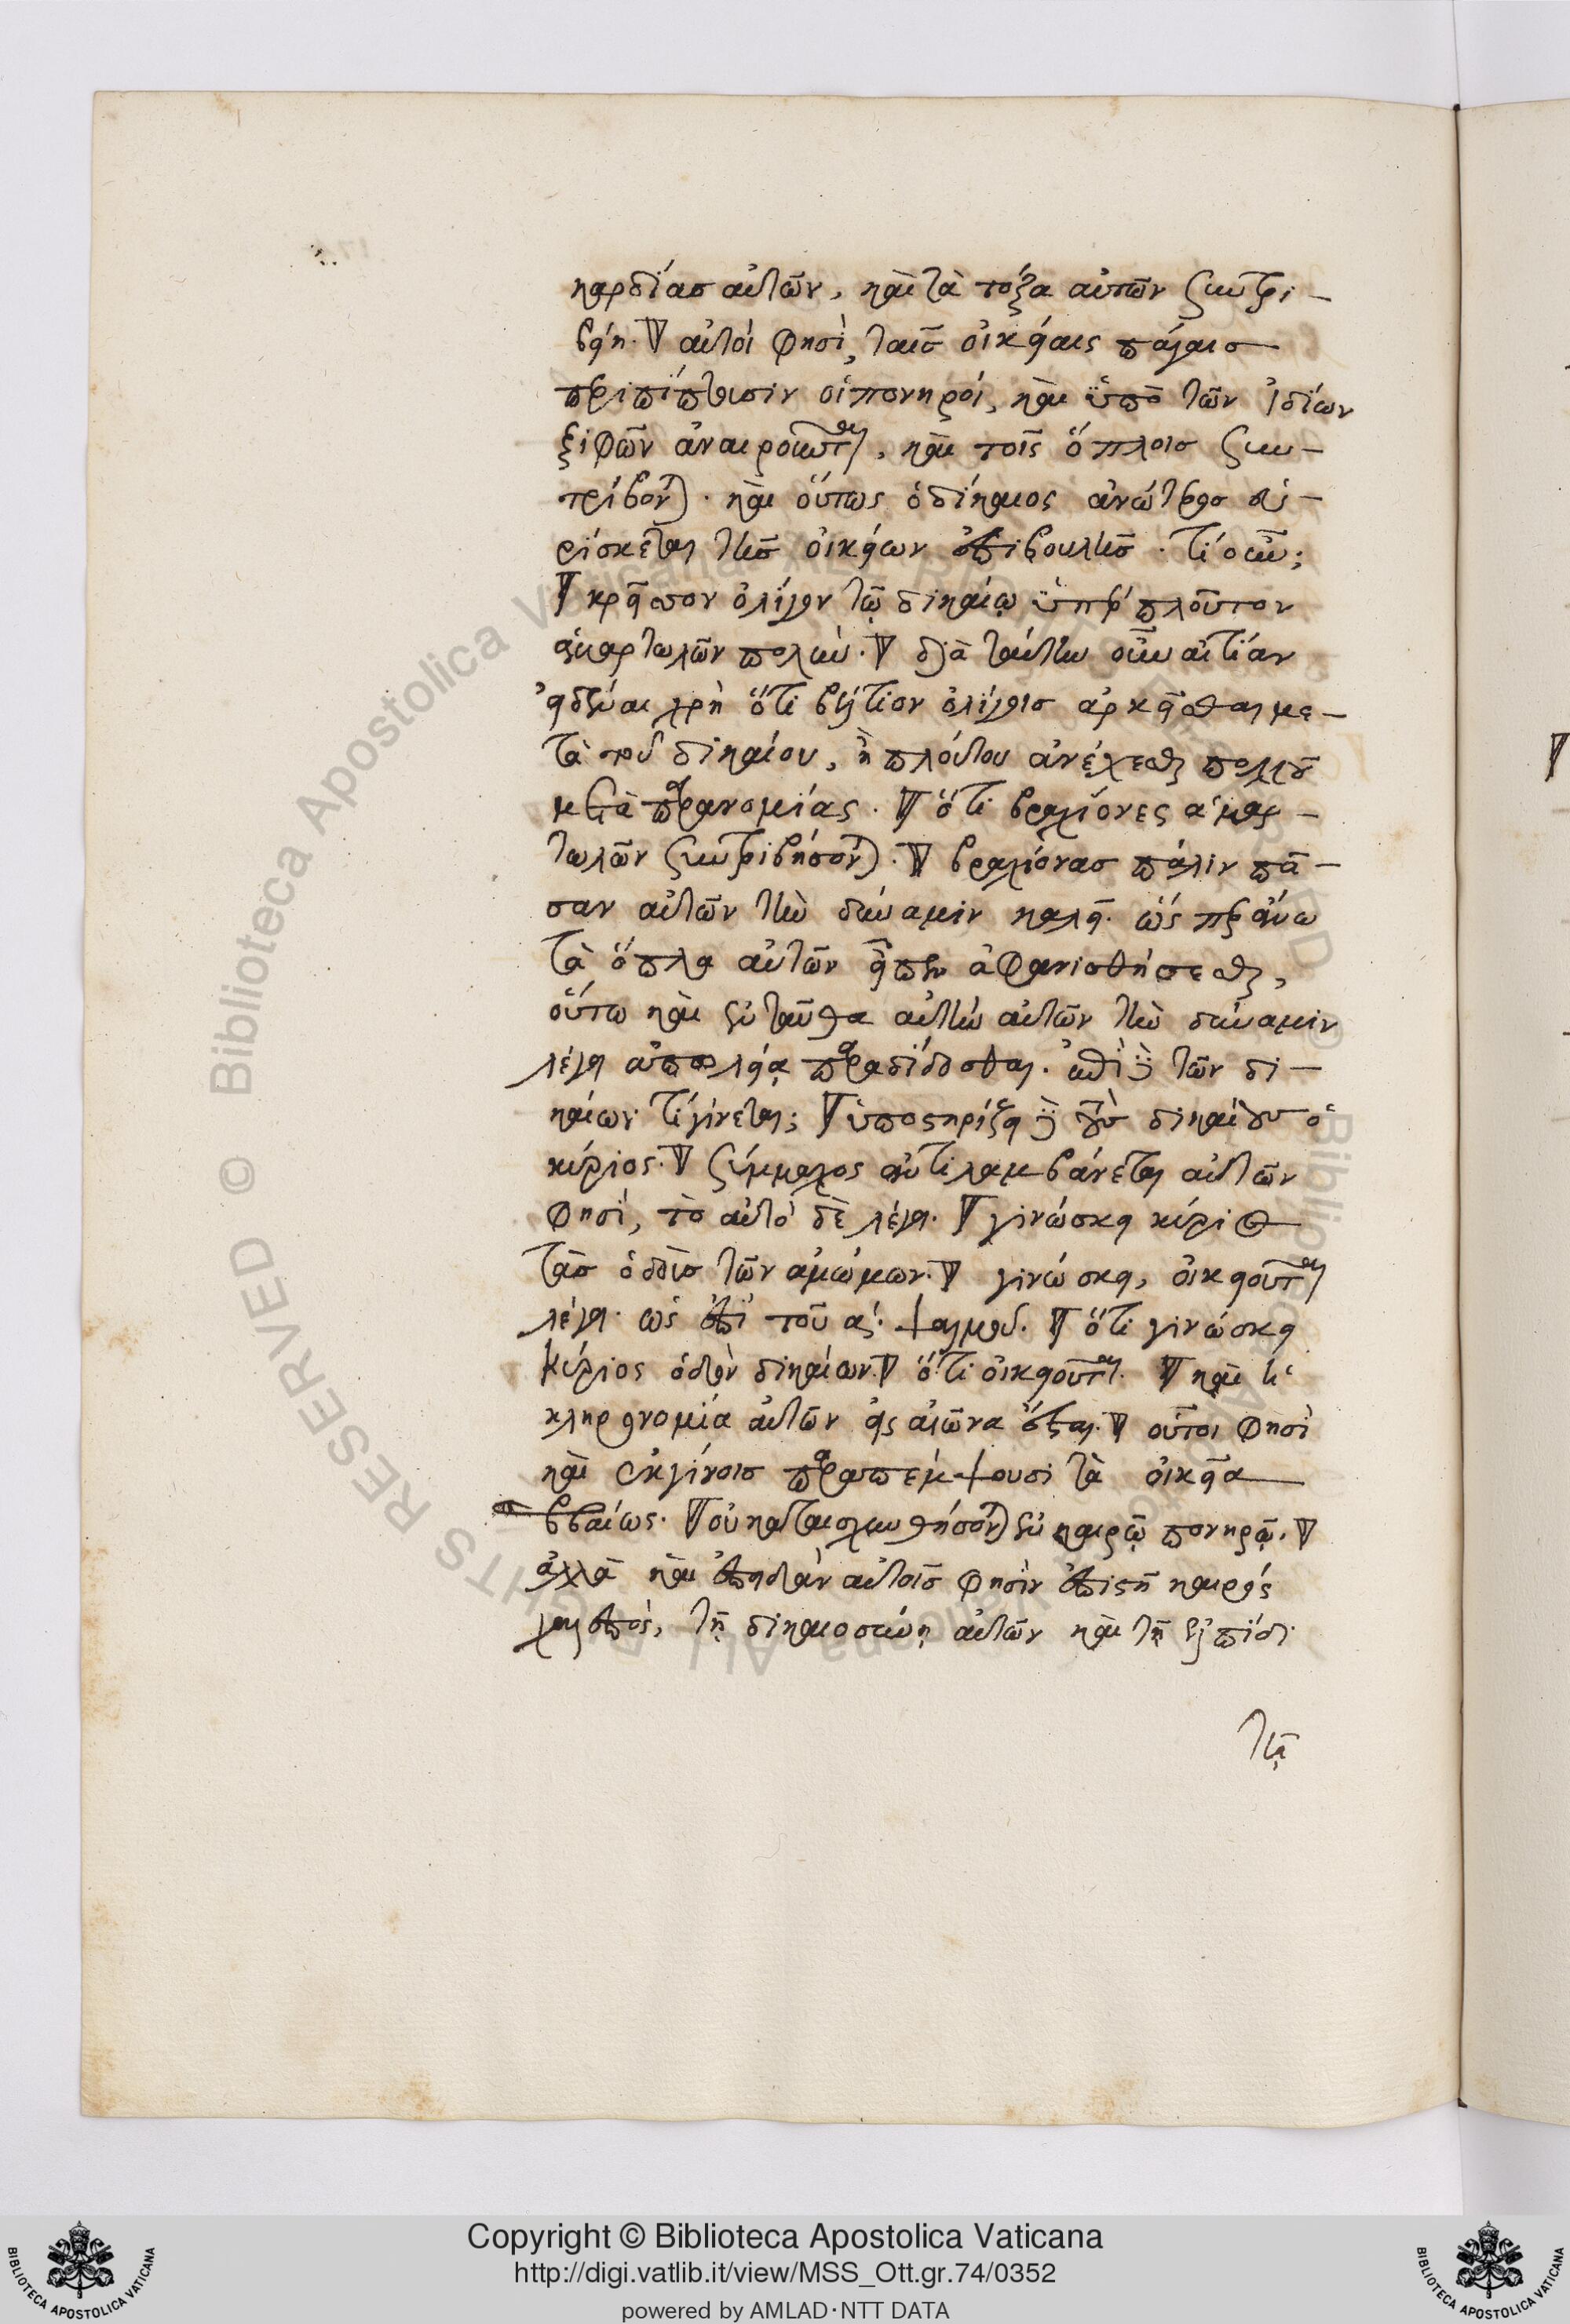 καρδίας αὐτῶν, καὶ τὰ τόξα αὐτῶν συντρι-
βείη. αὐτοί φησὶ, ταῖς οἰκείαις πάγαις
περιπίπτουσιν οἱ πονηροί, καὶ ὑπὸ τῶν ἰδίων
ξιφῶν ἀναιροῦνται, καὶ τοῖς ὅπλοις συν-
τρίβονται. καὶ οὕτως ὁ δίκαιος ἀνώτερος εὑ-
ρίσκεται τῆς οἰκείων ἐπιβουλῆς. τί οὖν;
κρεῖσσον ὀλίγον τῷ δικαίῳ ὑπὲρ πλοῦτον
ἁμαρτωλῶν πολύν. διὰ ταύτην οὖν αἰτίαν
εἰδέναι χρὴ ὅτι βέλτιον ὀλίγοις ἀρκεῖσθαι με-
τὰ τοῦ δικαίου, ἢ πλούτου ἀνέχεσθαι πολλοῦ
μετὰ παρανομίας. ὅτι βραχίονες ἁμαρ-
τωλῶν συντριβήσονται. βραχίονας πάλιν πᾶ-
σαν αὐτῶν τὴν δύναμιν καλεῖ. ὡς περ ἄνω
τὰ ὅπλα αὐτῶν εἶπεν ἀφανισθήσεσθαι,
οὕτω καὶ ἐνταῦθα αὐτὴν αὐτῶν τὴν δύναμιν
λέγει ἀπωλείᾳ παραδίδοσθαι. ἐπὶ δὲ τῶν δι-
καίων τί γίνεται; ὑποστηρίζει δὲ τοὺς δικαίους ὁ
κύριος. σύμμαχος ἀντιλαμβάνεται αὐτῶν
φησί, τὸ αὐτὸ δὲ λέγει. γινώσκει κύριος
τὰς ὁδοὺς τῶν ἀμώμων. γινώσκει, οἰκειοῦται
λέγει. ὡς ἐπὶ τοῦ αʹ. ψαλμοῦ. ὅτι γινώσκει
κύριος ὁδὸν δικαίων. ὅτι οἰκειοῦται. καὶ ἡ
κληρονομία αὐτῶν εἰς αἰῶνα ἔσται. οὗτοι φησὶ
καὶ ἐκγόνοις παραπέμψουσι τὰ οἰκεῖα
βεβαίως. οὐ καταισχυνθήσονται ἐν καιρῷ πονηρῷ.
ἀλλὰ καὶ ἐπειδὰν αὐτοῖς φησὶν ἐπιστῇ καιρὸς
χαλεπὸς, τῇ δικαιοσύνῃ αὐτῶν καὶ τῇ ἐλπίδι
τῇ
Copyright © Biblioteca Apostolica Vaticana
http://digi.vatlib.it/view/MSS_Ott.gr.74/0352
powered by AMLAD·NTT DATA